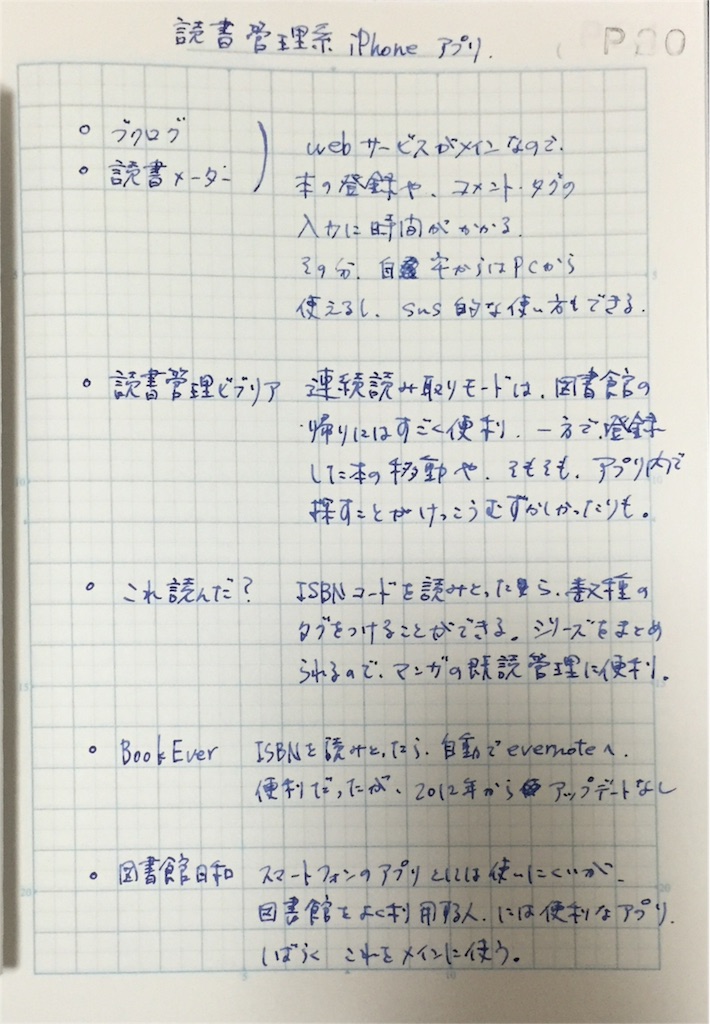 読書管理系 iPhone アプリ.
P20
○ ブクログ
○ 読書メーター
webサービスがメインなので、
本の登録や、コメント・タグの
入力に時間がかかる.
その分、自宅からはPCから
使えるし、sns的な使い方もできる.
○ 読書管理ビブリア 連続読み取りモードは、図書館の
帰りにはすごく便利. 一方で、登録
した本の移動や、そもそも、アプリ内で
探すことがけっこうむずかしかったりも。
○ これ読んだ? ISBNコードを読みとったら、数種の
タブをつけることができる。シリーズをまとめ
られるので、マンガの既読管理に便利。
○ BookEver ISBNを読みとったら、自動でevernoteへ.
便利だったが、2012年からアップデートなし
○ 図書館日和 スマートフォンのアプリとしては使いにくいが、
図書館をよく利用する人、には便利なアプリ.
しばらくこれをメインに使う。
5
10
10
15
15
20
20